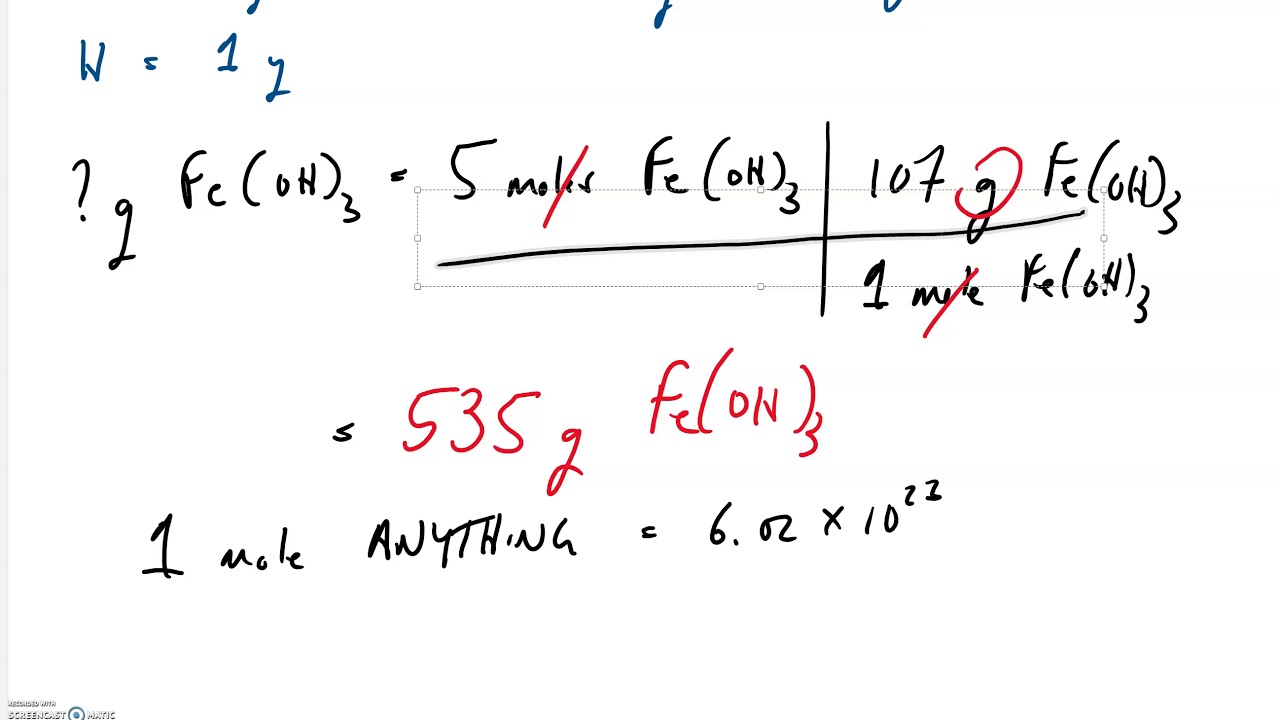 H = 1 g
? g Fe(OH)₃ = 5 moles Fe(OH)₃ | 107 g Fe(OH)₃
1 mole Fe(OH)₃
= 535 g Fe(OH)₃
1 mole ANYTHING = 6.02 × 10²³
RECORDED WITH
SCREENCAST MATIC